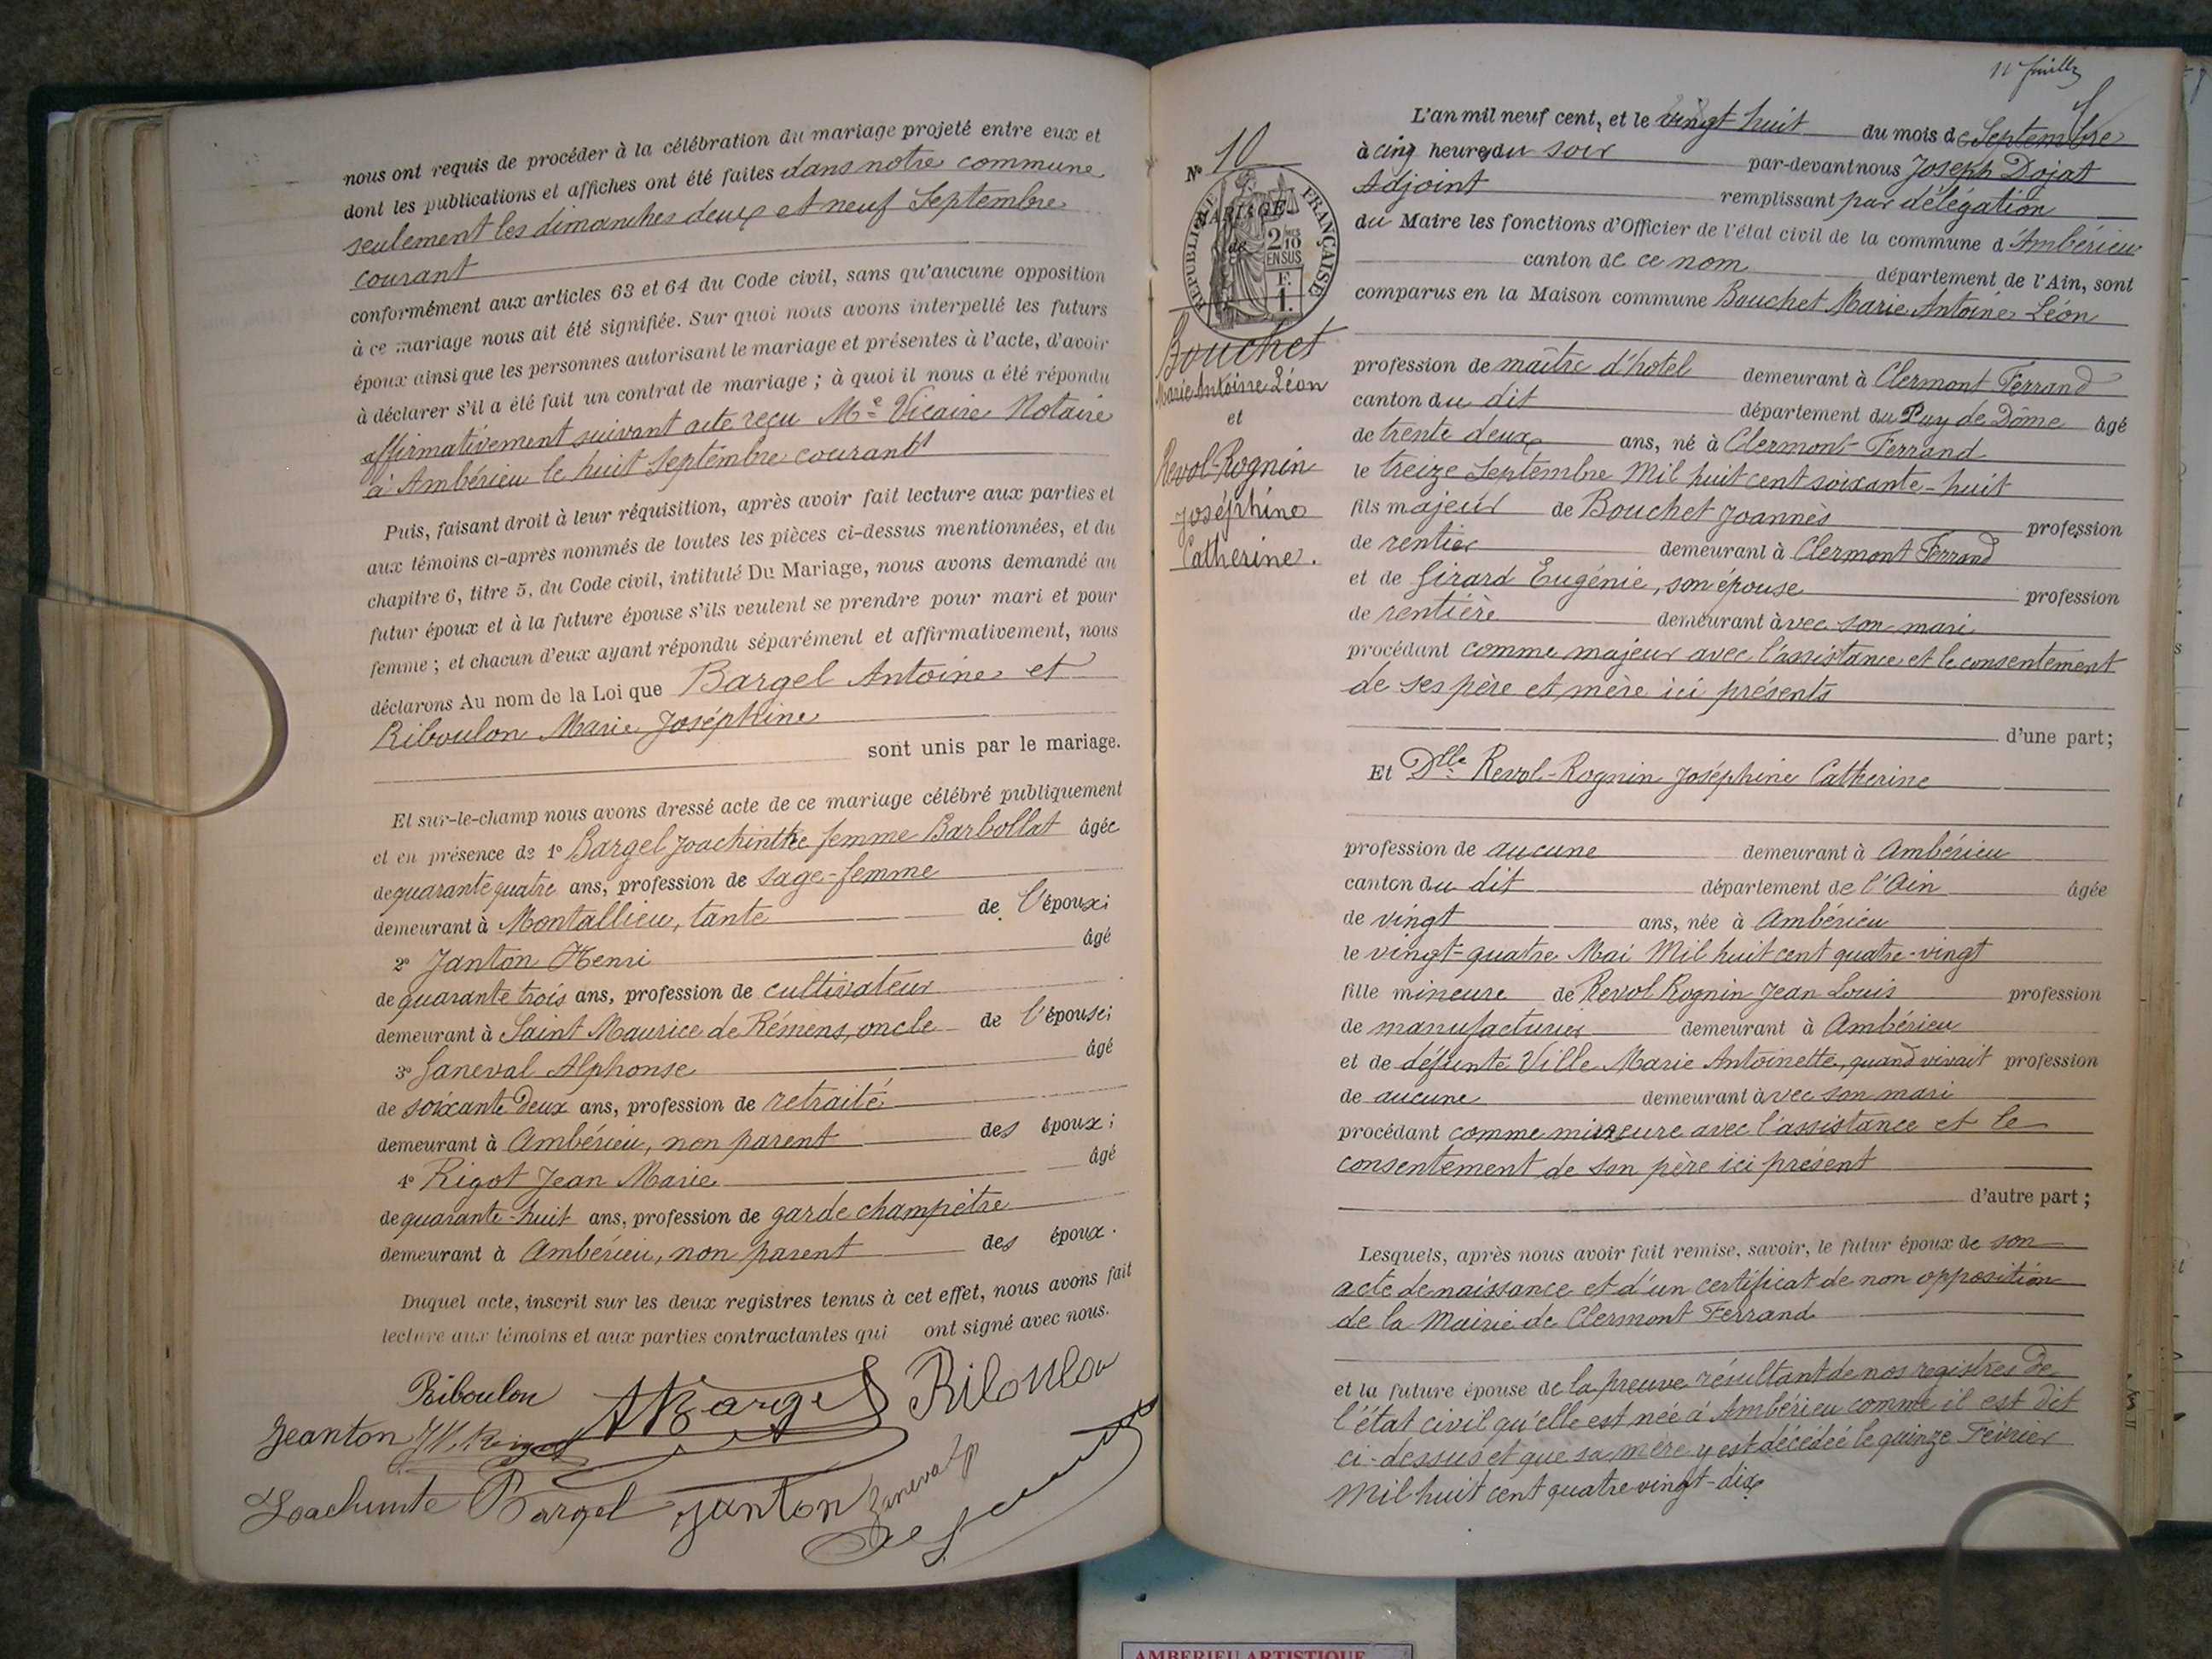 nous ont requis de procéder à la célébration du mariage projeté entre eux et
dont les publications et affiches ont été faites dans notre commune
seulement les dimanches deux et neuf Septembre
courant
conformément aux articles 63 et 64 du Code civil, sans qu'aucune opposition
à ce mariage nous ait été signifiée. Sur quoi nous avons interpellé les futurs
époux ainsi que les personnes autorisant le mariage et présentes à l'acte, d'avoir
à déclarer s'il a été fait un contrat de mariage ; à quoi il nous a été répondu
affirmativement suivant acte reçu Me Vicaire Notaire
à Ambérieu le huit Septembre courant
Puis, faisant droit à leur réquisition, après avoir fait lecture aux parties et
aux témoins ci-après nommés de toutes les pièces ci-dessus mentionnées, et du
chapitre 6, titre 5, du Code civil, intitulé Du Mariage, nous avons demandé au
futur époux et à la future épouse s'ils veulent se prendre pour mari et pour
femme ; et chacun d'eux ayant répondu séparément et affirmativement, nous
déclarons Au nom de la Loi que Bargel Antoine et
Riboulon Marie Joséphine
sont unis par le mariage.
Et sur-le-champ nous avons dressé acte de ce mariage célébré publiquement
et en présence de 1° Bargel Joachinthe femme Barbollat âgée
de quarante quatre ans, profession de sage-femme
demeurant à Montallieu, tante de l'époux;
2° Janton Henri âgé
de quarante trois ans, profession de cultivateur
demeurant à Saint Maurice de Rémens, oncle de l'épouse;
3° Ganeval Alphonse âgé
de soixante deux ans, profession de retraité
demeurant à Ambérieu, non parent des époux;
4° Rigot Jean Marie âgé
de quarante-huit ans, profession de garde champêtre
demeurant à Ambérieu, non parent des époux.
Duquel acte, inscrit sur les deux registres tenus à cet effet, nous avons fait
lecture aux témoins et aux parties contractantes qui ont signé avec nous.
Riboulon ABargel Riboulon
Jeanton
Joachinte Bargel Janton Ganeval
11e feuillet
N° 10
MARIAGE
RÉPUBLIQUE FRANÇAISE
2/10 EN SUS
F. 1.
Bouchet
Marie Antoine Léon
et
Revol-Rognin
Joséphine
Catherine.
L'an mil neuf cent, et le vingt huit du mois de Septembre
à cinq heures du soir par-devant nous Joseph Dojat
Adjoint remplissant par délégation
du Maire les fonctions d'Officier de l'état civil de la commune d'Ambérieu
canton de ce nom département de l'Ain, sont
comparus en la Maison commune Bouchet Marie Antoine Léon
profession de maître d'hotel demeurant à Clermont Ferrand
canton du dit département du Puy de Dôme âgé
de trente deux ans, né à Clermont-Ferrand
le treize Septembre Mil huit cent soixante-huit
fils majeur de Bouchet Joannès profession
de rentier demeurant à Clermont Ferrand
et de Girard Eugénie, son épouse profession
de rentière demeurant avec son mari
procédant comme majeur avec l'assistance et le consentement
de ses père et mère ici présents
d'une part;
Et Dlle Revol-Rognin Joséphine Catherine
profession de aucune demeurant à Ambérieu
canton du dit département de l'Ain âgée
de vingt ans, née à Ambérieu
le vingt-quatre Mai Mil huit cent quatre-vingt
fille mineure de Revol Rognin Jean Louis profession
de manufacturier demeurant à Ambérieu
et de défunte Ville Marie Antoinette, quand vivait profession
de aucune demeurant avec son mari
procédant comme mineure avec l'assistance et le
consentement de son père ici présent
d'autre part;
Lesquels, après nous avoir fait remise, savoir, le futur époux de son
acte de naissance et d'un certificat de non opposition
de la Mairie de Clermont Ferrand
et la future épouse de la preuve résultant de nos registres de
l'état civil qu'elle est née à Ambérieu comme il est dit
ci-dessus et que sa mère y est décédée le quinze Février
Mil huit cent quatre-vingt-dix
AMBERIEU ARTISTIQUE